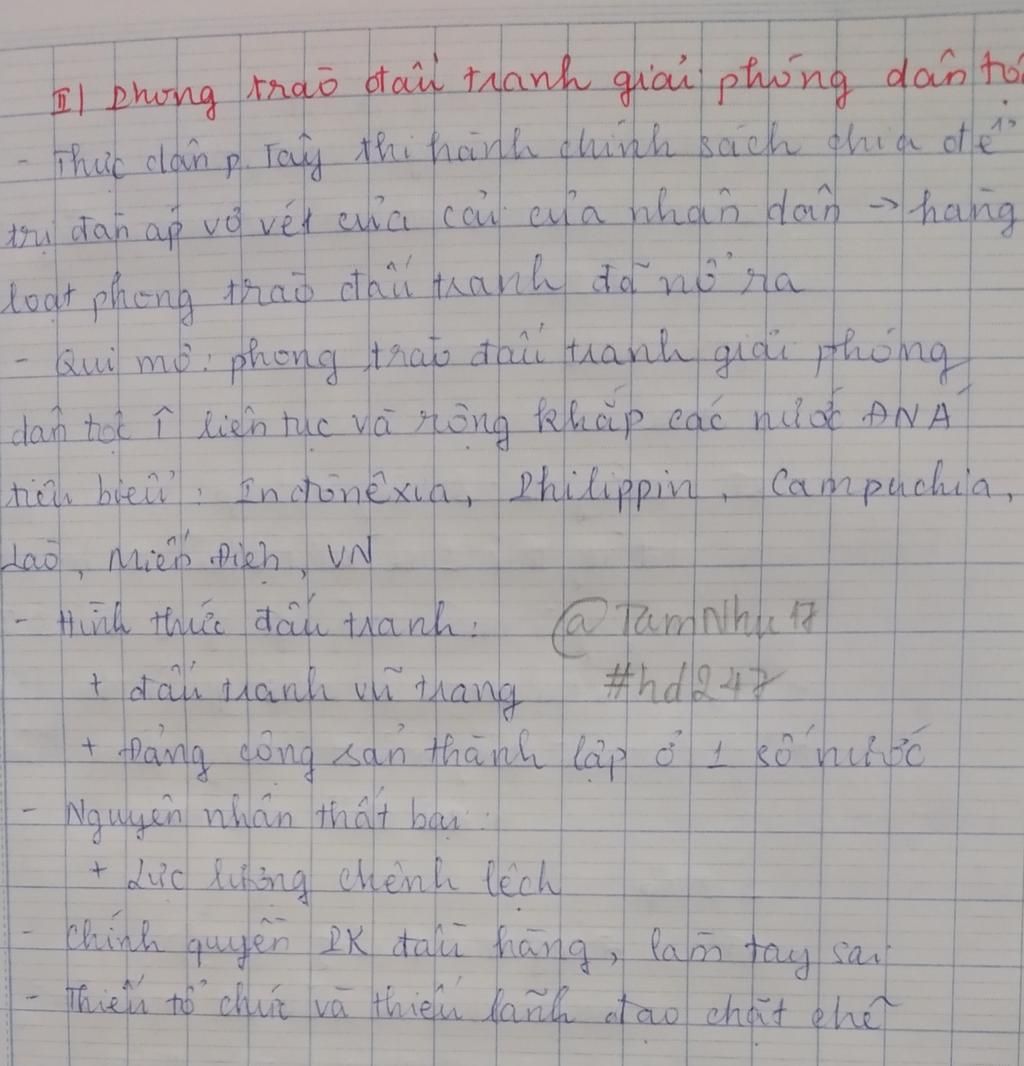 II) Phong trào đấu tranh giải phóng dân tộ
- Thực dân p. Tây thi hành chính sách chia để
trị đàn áp vơ vét của cải của nhân dân → hàng
loạt phong trào đấu tranh đã nổ ra
- Qui mô: phong trào đấu tranh giải phóng
dân tộc liên tục và rộng khắp các nước ĐNÁ
tiêu biểu: Inđônêxia, Philippin, Campuchia,
Lào, Miến Điện, VN
- Hình thức đấu tranh:
@TamNhu17
+ đấu tranh vũ trang
#hd247
+ Đảng cộng sản thành lập ở 1 số nước
- Nguyên nhân thất bại:
+ Lực lượng chênh lệch
- Chính quyền PK đầu hàng, làm tay sai
- Thiếu tổ chức và thiếu lãnh đạo chặt chẽ